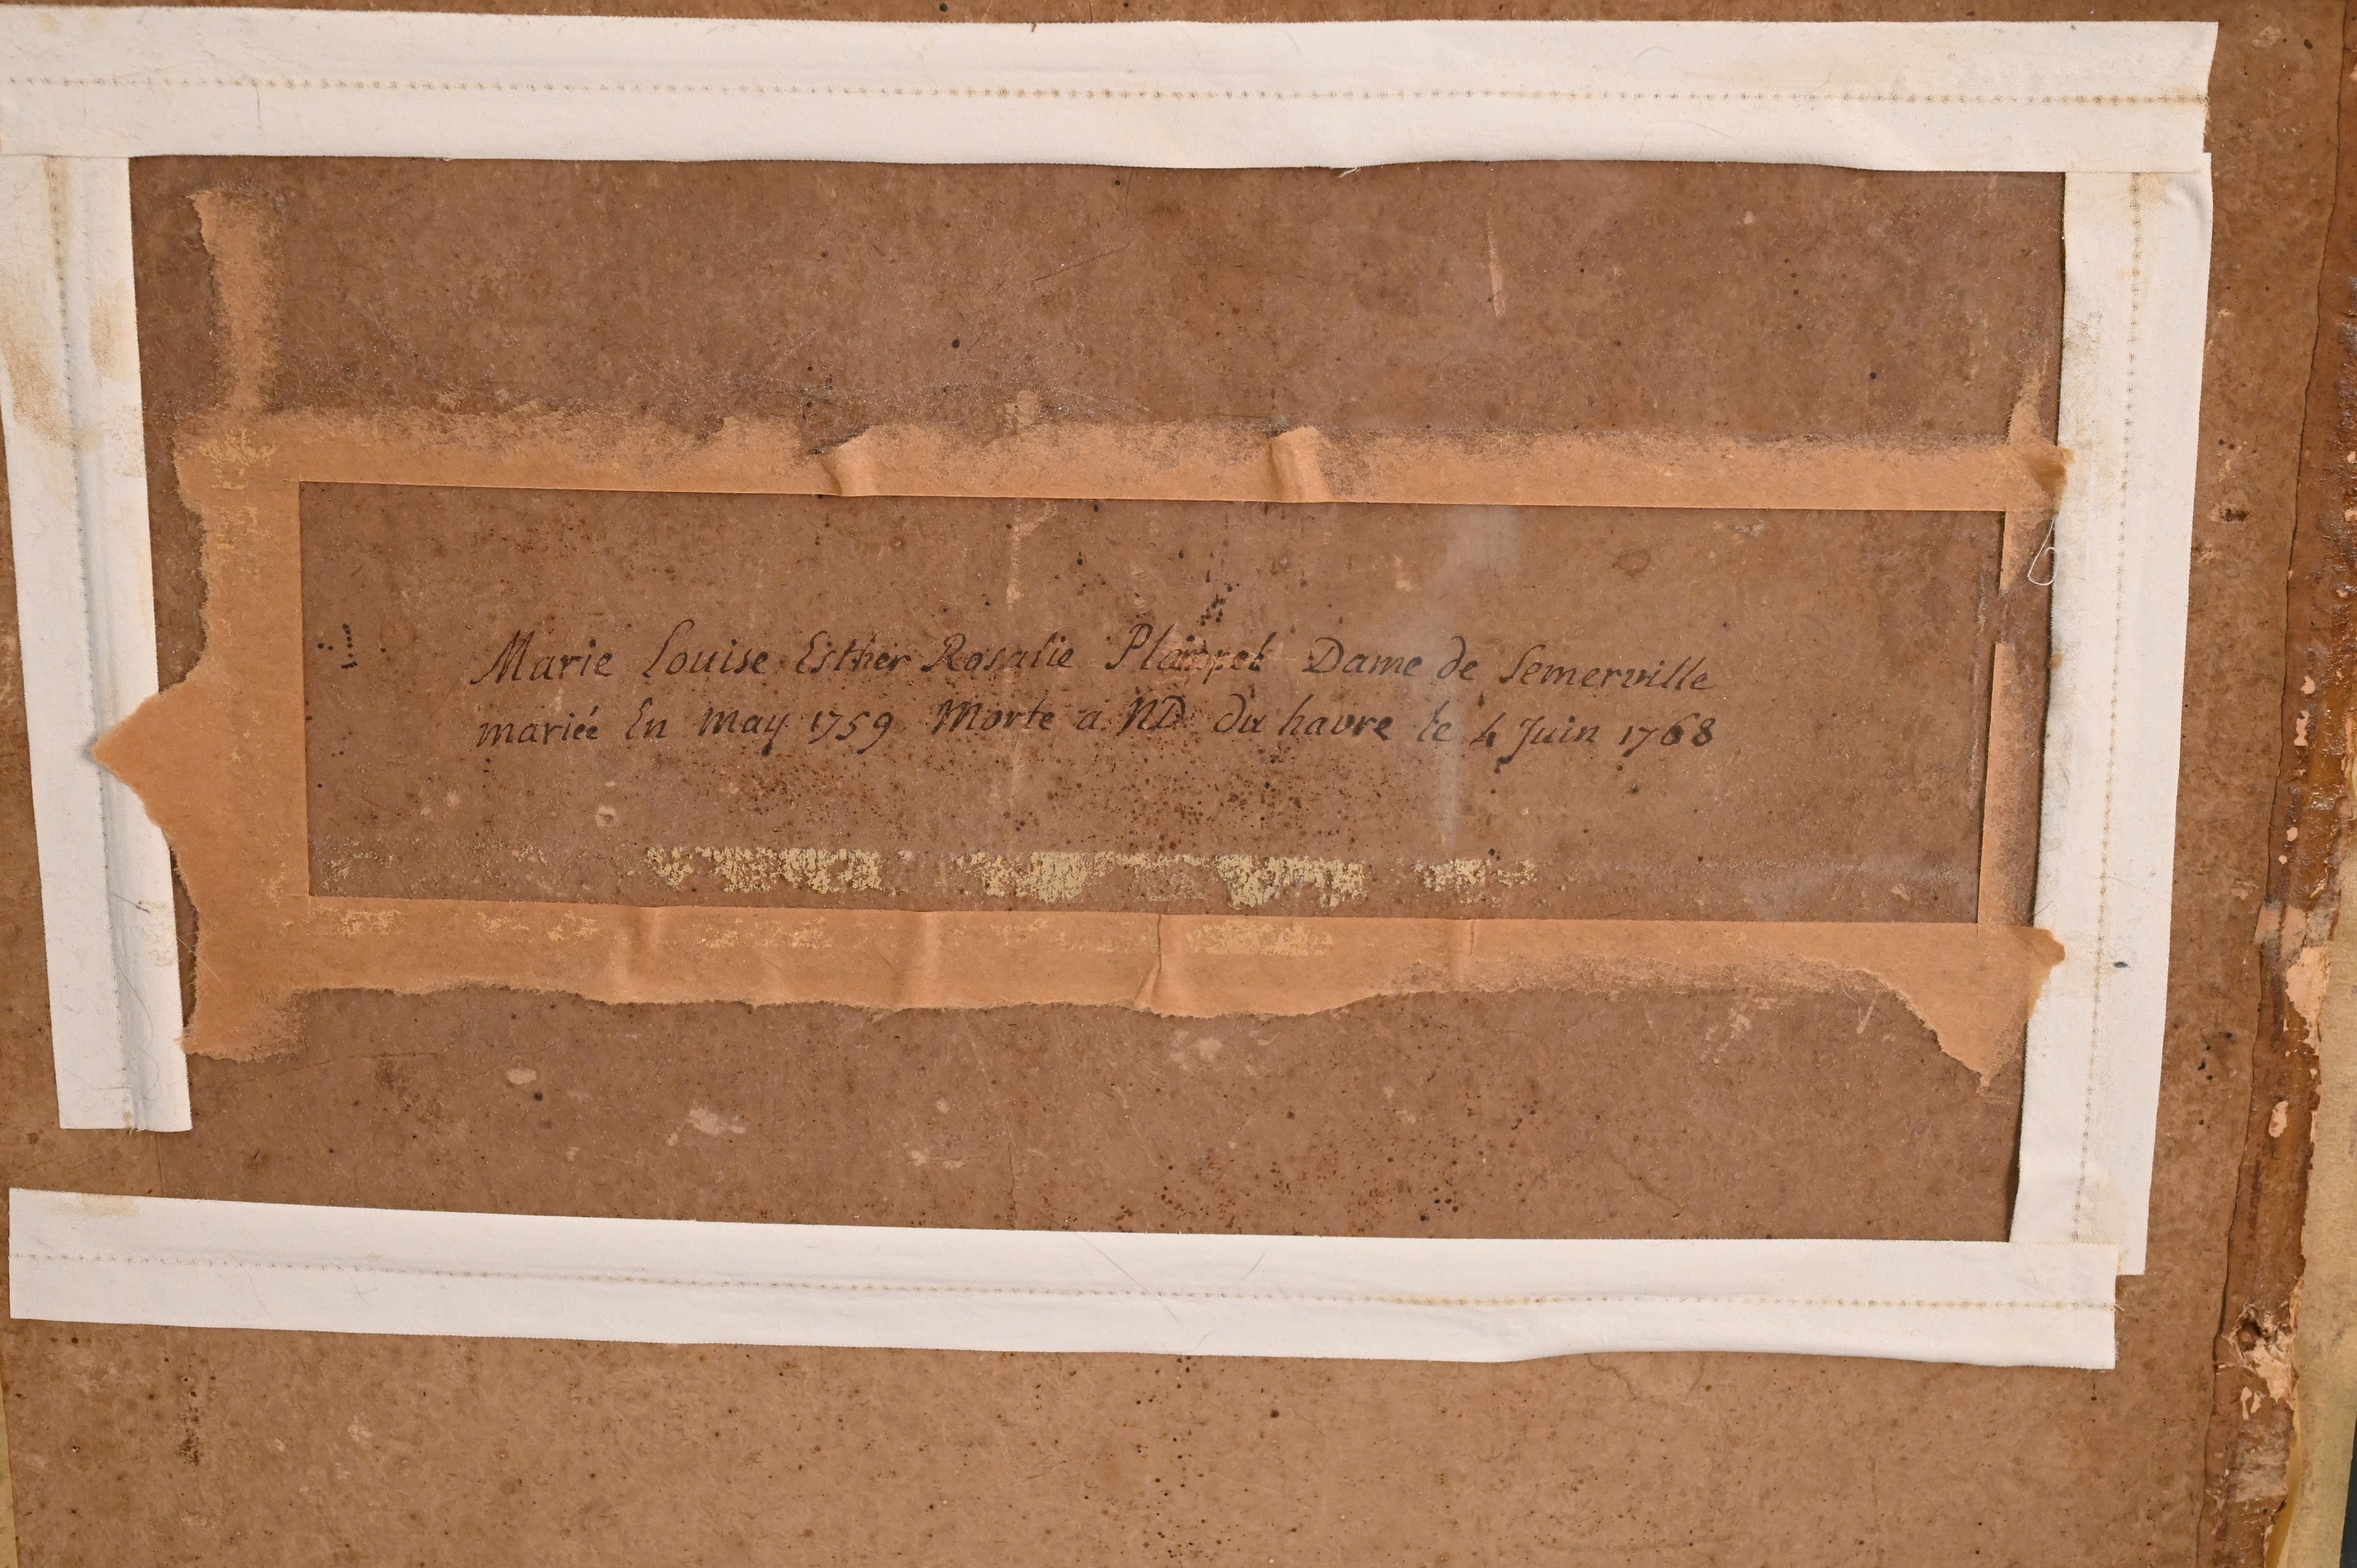 Marie Louise Esther Rosalie Plampel Dame de Semerville
mariée En May 1759 Morte a ND du havre le 4 Juin 1768